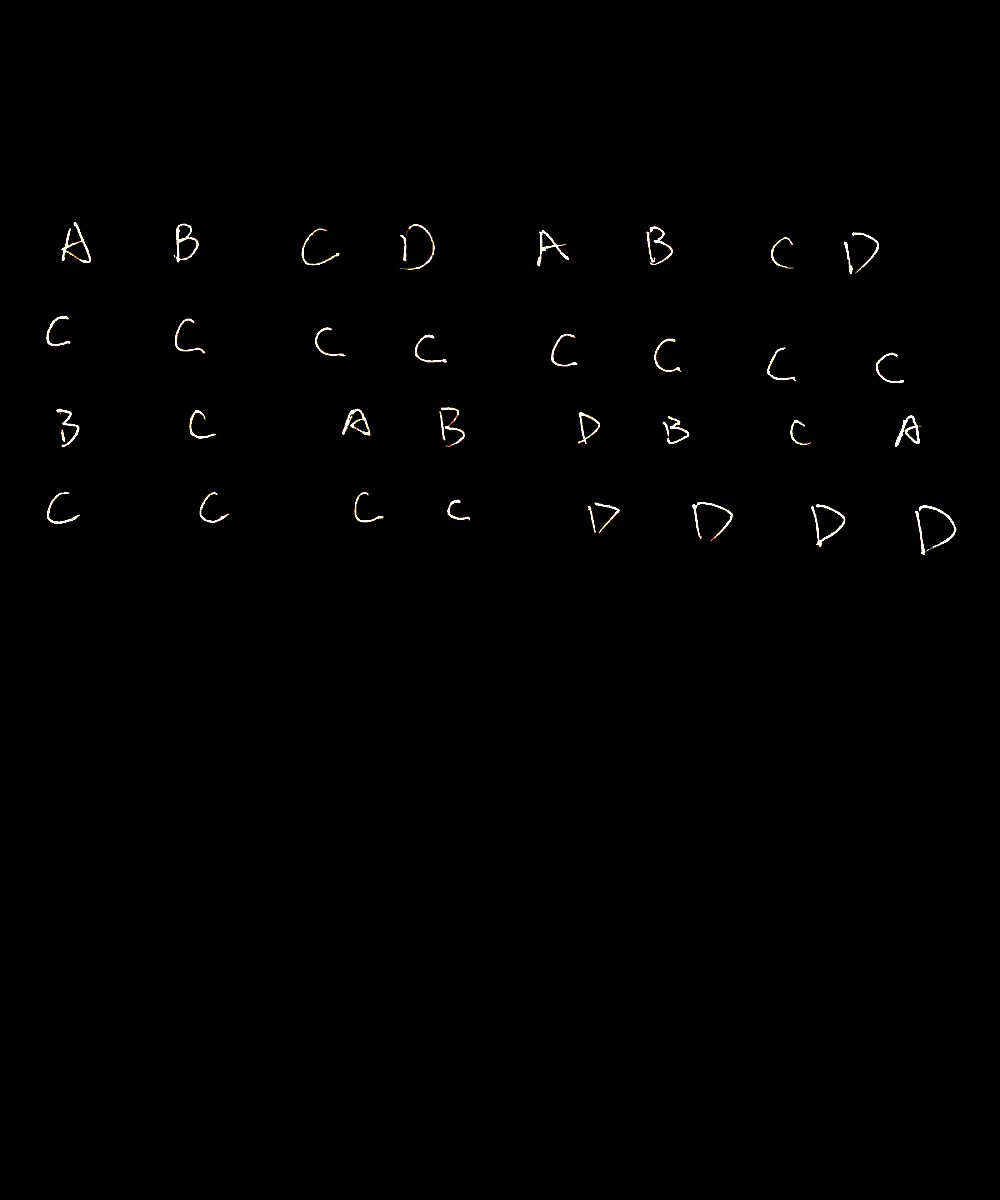 A B C D A B C D
C C C C C C C C
B C A B D B C A
C C C C D D D D